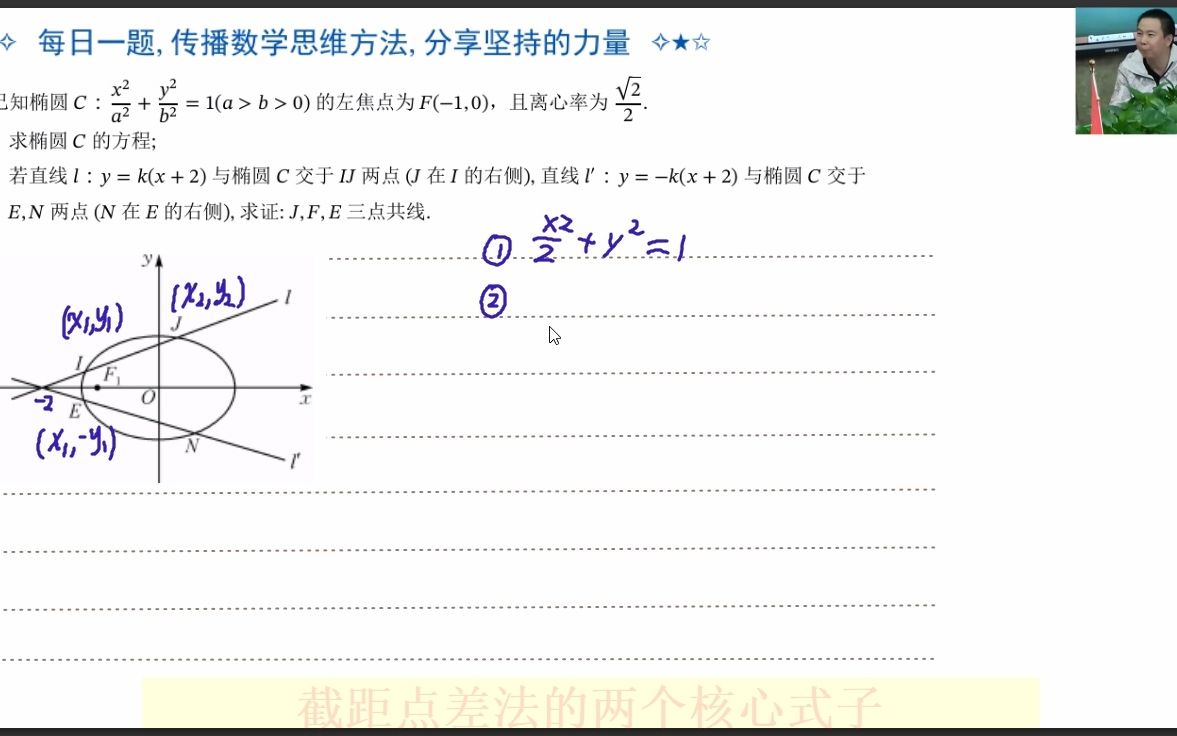 ✧ 每日一题, 传播数学思维方法, 分享坚持的力量 ✧★☆
已知椭圆 C : x²/a² + y²/b² = 1(a > b > 0) 的左焦点为 F(−1,0)，且离心率为 √2/2.
求椭圆 C 的方程;
若直线 l : y = k(x + 2) 与椭圆 C 交于 IJ 两点 (J 在 I 的右侧), 直线 l′ : y = −k(x + 2) 与椭圆 C 交于
E,N 两点 (N 在 E 的右侧), 求证: J,F,E 三点共线.
① x2/2 + y² = 1
②
y
(x₂,y₂)
l
(x₁,y₁)
J
I
F₁
O
x
-2
E
(x₁,-y₁)
N
l′
截距点差法的两个核心式子